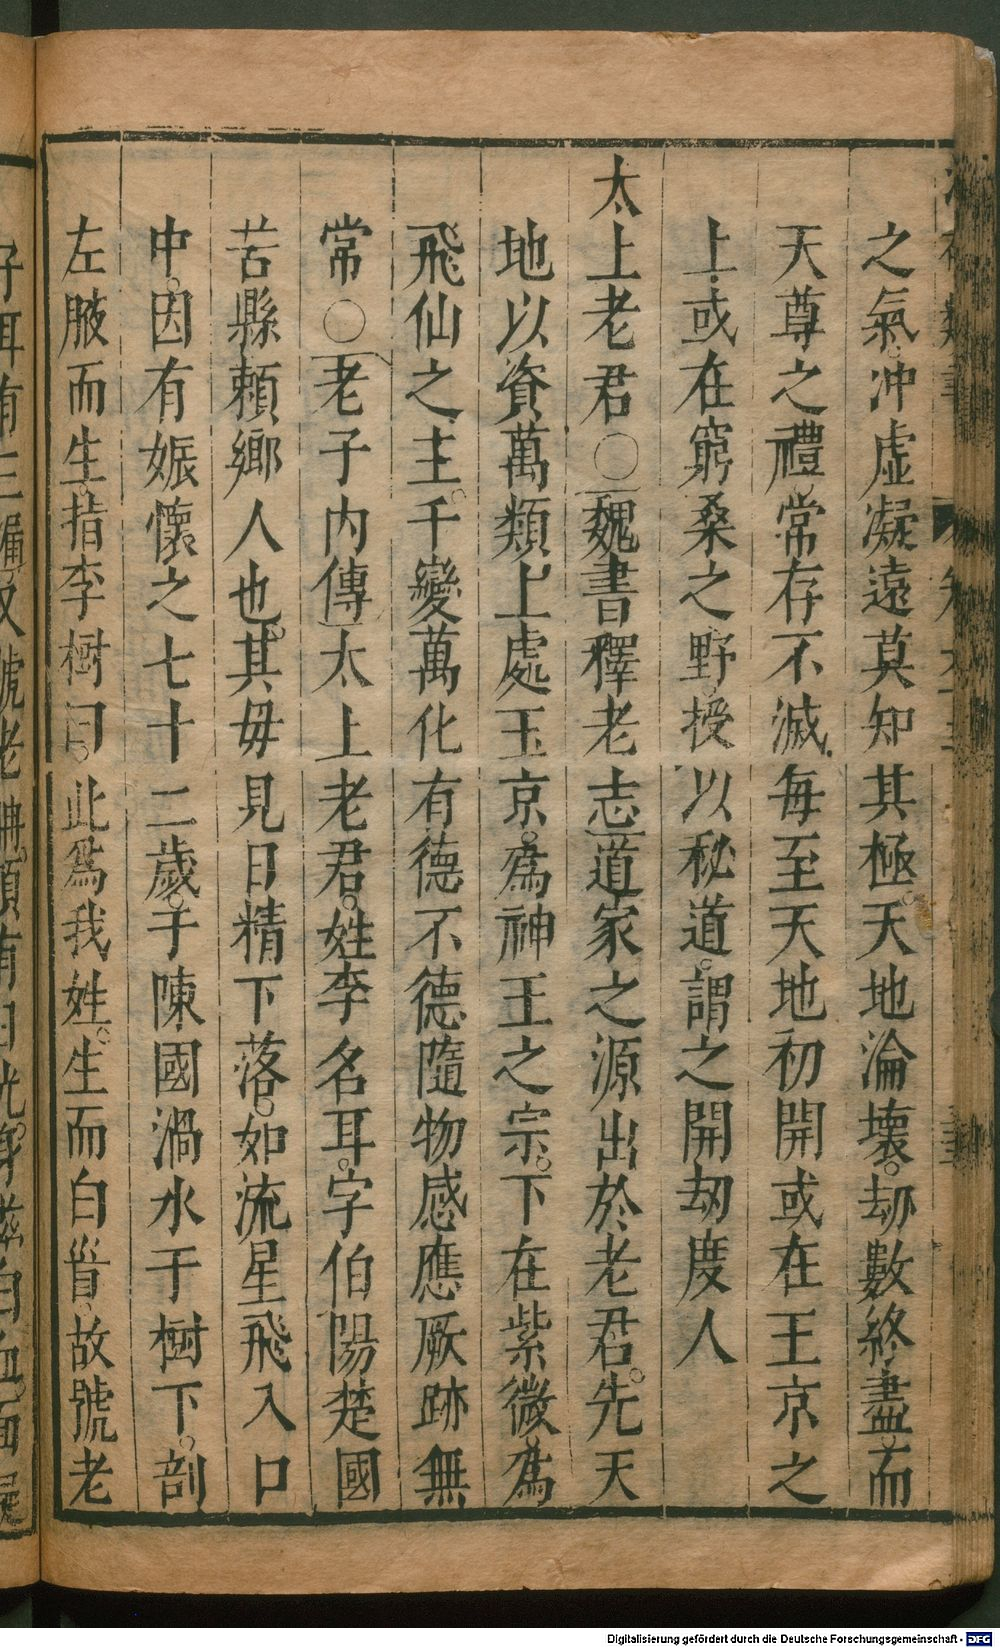 之氣冲虛凝遠莫知其極天地淪壞劫數終盡而
天尊之禮常存不滅每至天地初開或在王京之
上或在窮桑之野授以秘道謂之開劫度人
太上老君○魏書釋老志道家之源出於老君先天
地以資萬類上處玉京為神王之宗下在紫微為
飛仙之主千變萬化有德不德隨物感應厥跡無
常○老子內傳太上老君姓李名耳字伯陽楚國
苦縣頼鄉人也其毋見日精下落如流星飛入口
中因有娠懷之七十二歲于陳國渦水于樹下剖
左腋而生指李樹曰此為我姓生而白首故號老
子耳有三漏又號老聃頂有日光身滋白血面
Digitalisierung gefördert durch die Deutsche Forschungsgemeinschaft - DFG